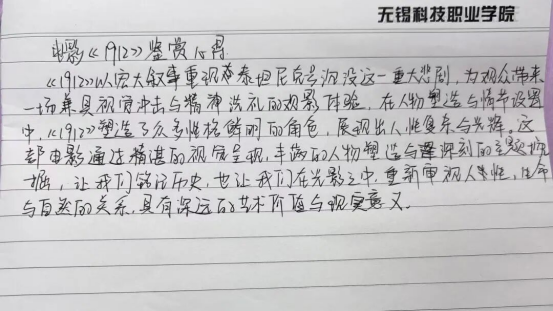 无锡科技职业学院
电影《1912》鉴赏心得
《1912》以宏大叙事重现泰坦尼克号沉没这一重大悲剧，为观众带来
一场兼具视觉冲击与精神洗礼的观影体验。在人物塑造与情节设置
中，《1912》塑造了众多性格鲜明的角色，展现出人性复杂与光辉。这
部电影通过精湛的视觉呈现，丰满的人物塑造与深刻的主题挖
掘，让我们铭记历史，也让我们在光影之中，重新审视人类性，生命
与自然的关系，具有深远的艺术价值与现实意义。